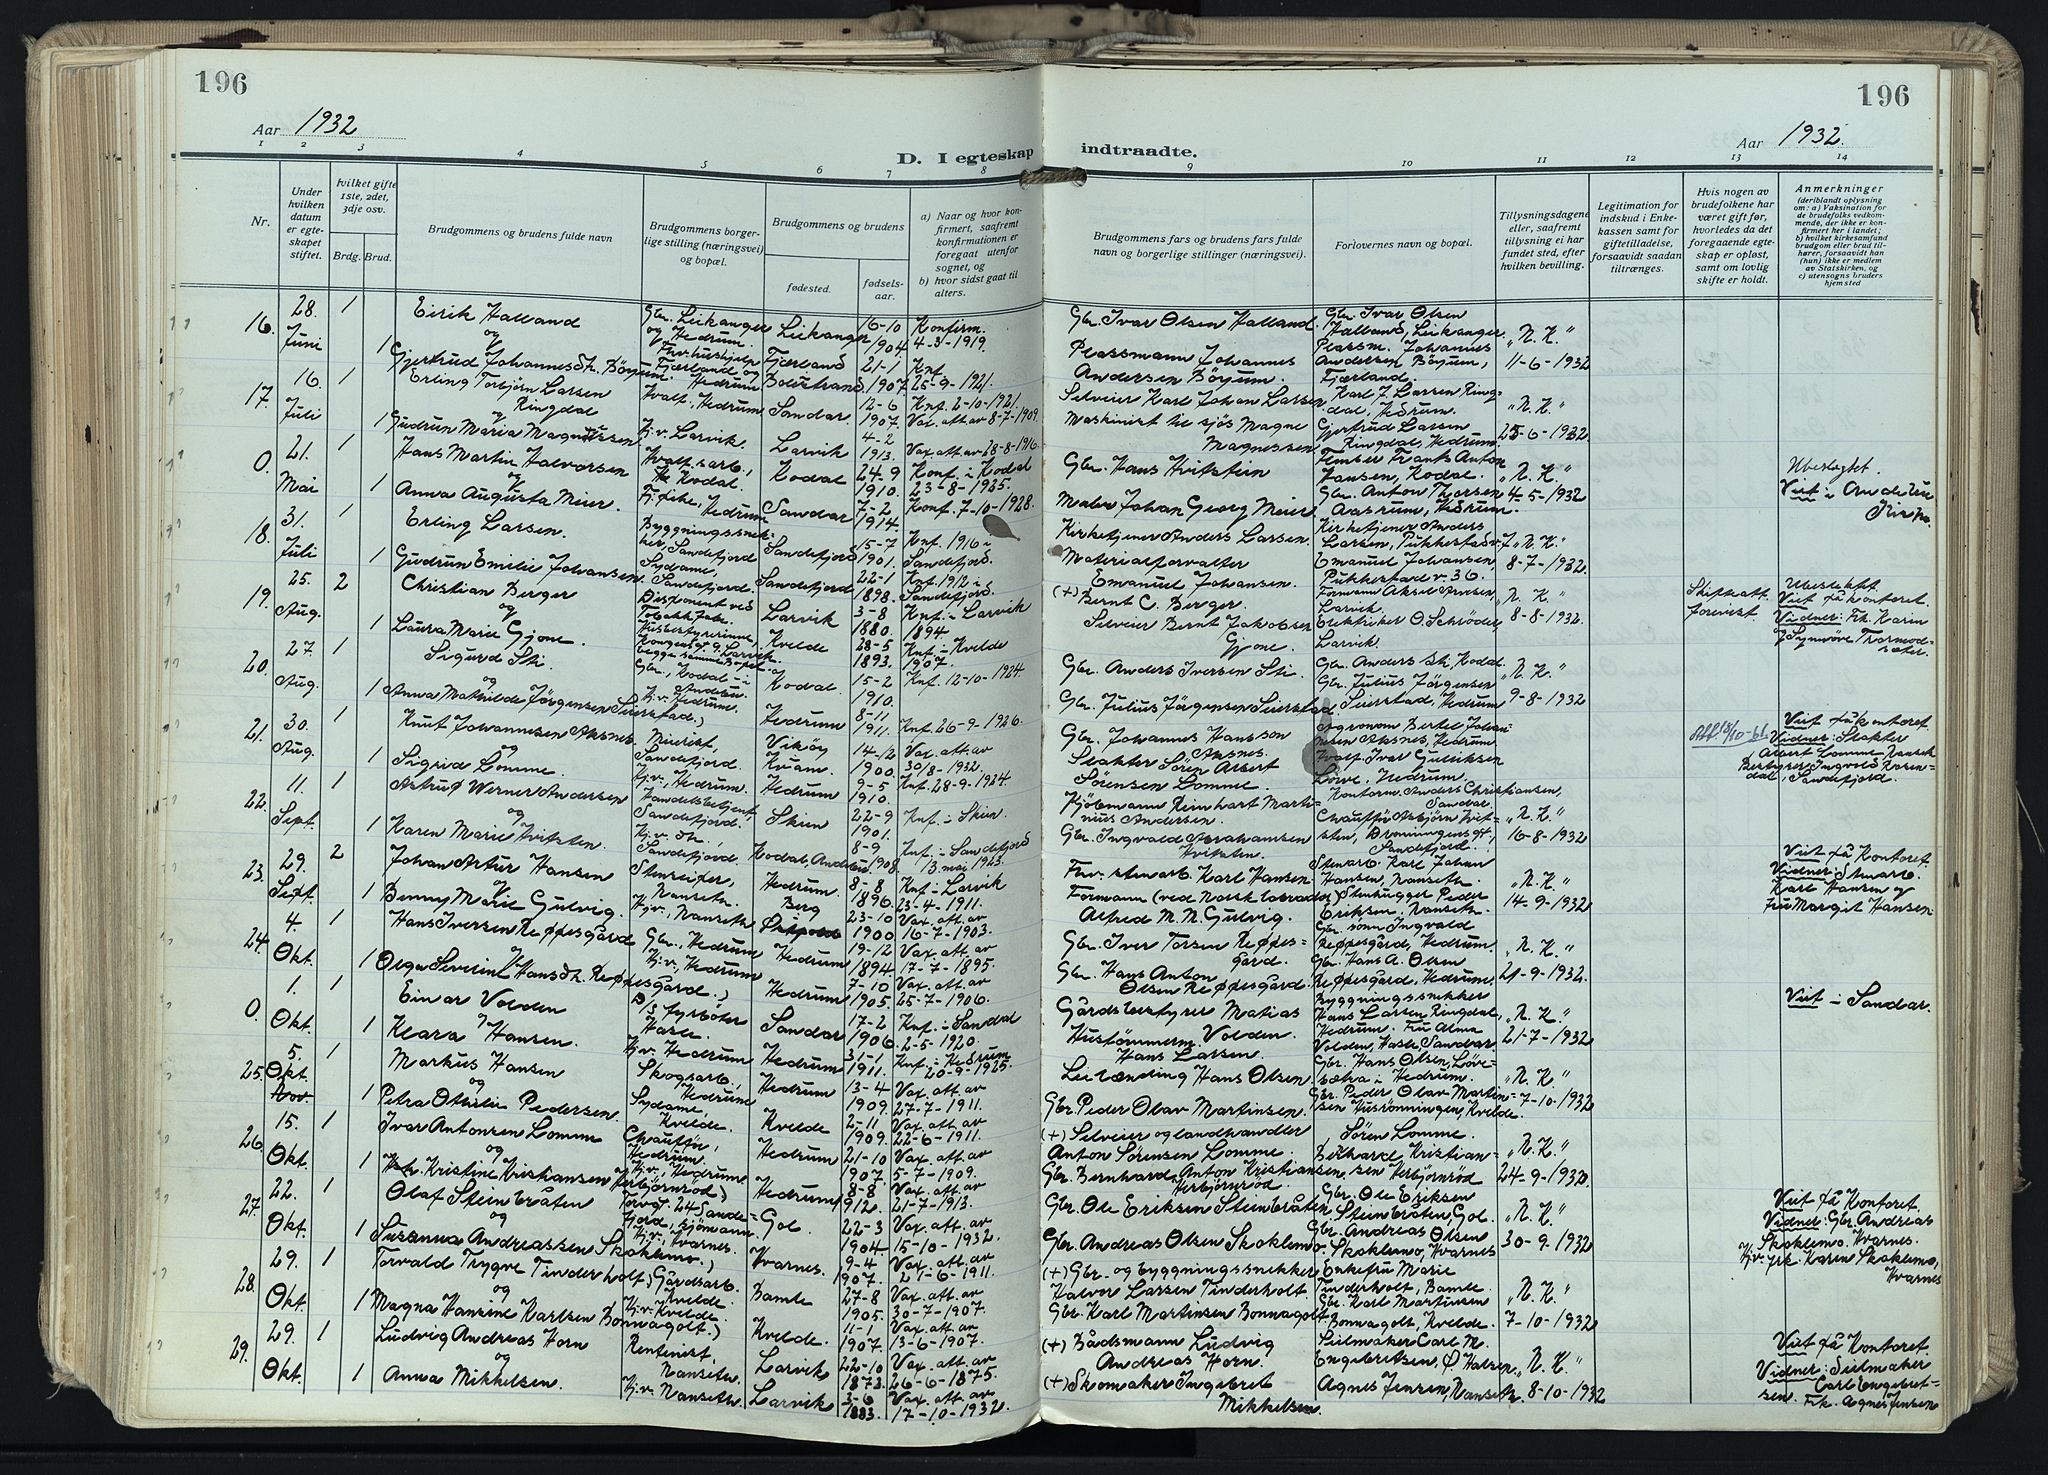 196
196
Aar 1932
Aar 1932.
D. I egteskap indtraadte.
1 2 3 4 5 6 7 8 9 10 11 12 13 14
Nr.
Under hvilken datum er egteskapet stiftet.
hvilket gifte 1ste, 2det, 3dje osv.
Brdg. Brud.
Brudgommens og brudens fulde navn
Brudgommens borgerlige stilling (næringsvei) og bopæl.
Brudgommens og brudens
fødested.
fødselsaar.
a) Naar og hvor konfirmert, saafremt konfirmationen er foregaat utenfor sognet, og
b) hvor sidst gaat til alters.
Brudgommens fars og brudens fars fulde navn og borgerlige stillinger (næringsvei).
Forlovernes navn og bopæl.
Tillysningsdagene eller, saafremt tillysning ei har fundet sted, efter hvilken bevilling.
Legitimation for indskud i Enkekassen samt for giftetilladelse, forsaavidt saadan tiltrænges.
Hvis nogen av brudefolkene har været gift før, hvorledes da det foregaaende egteskap er opløst, samt om lovlig skifte er holdt.
Anmerkninger (deriblandt oplysning om: a) Vaksination for de brudefolks vedkommende, der ikke er konfirmert her i landet; b) hvilket kirkesamfund brudgom eller brud tilhører, forsaavidt han (hun) ikke er medlem av Statskirken, og c) utensogns bruders hjemsted
16. 28. Juni 1 Eirik Halland Gbr. Leikanger og Hedrum. Leikanger 16-10 1904 Konfirm. 4-3-1919. Gbr. Ivar Olsen Halland. Gbr. Ivar Olsen Halland, Leikanger, "N. K."
og
1 Gjertrud Johannesdh. Böyum. Fjærland og Hedrum Fjærland 21-1 1907. Knf. 25-9-1921. Plassmann Johannes Andersen Böyum. Plassm. Johannes Andersen Böyum, Fjærland. 11-6-1932
17. 16. Juli 1 Erling Torbjörn Larsen Ringdal Hvalf., Hedrum Sandar 12-6 1907. Knf. 2-10-1921. Vax. att. av 8-7-1909. Selveier Karl Johan Larsen Karl J. Larsen Ringdal, Hedrum. "N. K."
og
1 Gudrun Maria Magnussen Hj.v. Larvik. Larvik 4-2 1913. Vax. att. av 28-8-1916. Maskinist til sjøs Magne Magnessen Gjertrud Larsen Ringdal, Hedrum. 25-6-1932
0. 21. Mai 1 Hans Martin Halvorsen Hvalf.sarb., Kodal. Kodal 24-9 1910. Konf. i Kodal 23-8-1925. Gbr. Hans Hvitstein Frants Anton Jansen, Kodal. "N. K." Ubeslegtet. Viet i Andebu Kirke.
og
1 Anna Augusta Meier. Hedrum Sandar 7-2 1914. Konf. 7-10-1928. Maler Johan Georg Meier Gbr. Anton Thorsen Aasrum, Hedrum. 4-5-1932
18. 31. Juli 1 Erling Larsen. Byggningssnekker, Sandefjord Sandefjord 15-7 1901. Knf. 1916 i Sandefjord. Kirketjener Anders Larsen. Kirketjener Anders Larsen, "N. K."
1 Gudrun Emilie Johansen Sydame, Sandefjord. Sandefjord 22-1 1898. Knf. 1912 i Sandefjord. Materialforvalter Emanuel Johansen. Emanuel Johansen, Pukkestad v. 36. 8-7-1932.
19. 25. Aug. 2 Christian Berger Disponent ved Larvik 3-8 1880. Knf. i Larvik 1894. (+) Bernt C. Berger. Formann Aksel Larvik. "N. K." Skifteatt. forevist. Ubeslektet Viet på kontoret. Vidner: Frk. Karin
og
1 Laura Marie Gjone. Kvelde 28-5 1893. Knf. i Kvelde 1907. Selveier Bernt Jakobsen Gjone. O. Schröder, Larvik. 8-8-1932.
20. 27. Aug. 1 Sigurd Sti. Gbr., Kodal i Andebu. Kodal. 15-2 1910. Knf. 12-10-1924. Gbr. Anders Iversen Sti. Gbr. Anders Sti, Kodal. "N. K."
og
1 Anna Mathilde Jörgensen Seierstad.) Hj.v. Hedrum. Hedrum 8-11 1911. Knf. 26-9-1926. Gbr. Julius Jörgensen Seierstad Gbr. Julius Jörgensen Seierstad, Hedrum 9-8-1932
21. 30. Aug. 1 Knut Johannesen Aksnes Meierist, Sandefjord. Vikøy Kvam. 14-12 1900. Vax. att. av 30/8-1932. Gbr. Johannes Hansson Aksnes. agronom Bertel Johannesen Aksnes, Hedrum Viet på kontoret. Vidner: Slakter
og
1 Sigrid Lomme. Hj.v., Hedrum. Hedrum 9-5 1910. Knf. 28-9-1924. Slakter Sören Albert Sörensen Lomme. Hvalf. Ivar Gulliksen Hedrum. Albert Lomme, Nanset. Bestyrer Ingvald Rosendal, Sandefjord.
22. 11. Sept. 1 Astrup Werner Andersen Sandefjord. Skien 22-9 1901. Knf. i Skien. Kjöbmann Reinhart Martinius Andersen. Kontorm. Anders Christiansen, Sandar. "N. K."
og
1 Karen Marie Hvitsten. Hj.v. Sandefjord. Kodal, Andebu. 8-9 1908. Knf. i Sandefjord 13. mai 1923. Gbr. Ingvald Abrahamsen Hvitsten. Chaufför Asbjörn Hvitsten, Dronningensgt., Sandefjord. 16-8-1932
23. 29. Sept. 2 Johan Artur Hansen Nanseth. Hedrum 8-8 1896. Knf. i Larvik 23-4-1911. Fhv. stenarb. Karl Hansen Stenarb. Karl Johan Hansen, Nanseth. "N. K." Viet på Kontoret. Vidner: Stenarb. Karl Hansen og fru Margit Hansen
og
1 Benny Marie Gulvig. Hj.v., Nanseth Berg 23-10 1900 Vax. att. av 16-7-1903. Formann (ved Norsk labrador) Alfred M. N. Gulvig. Stenhugger Peder Eriksen, Nanseth. 14-9-1932
24. 4. Okt. 1 Hans Iversen Reppesgård Gbr., Hedrum Hedrum 19-12 1894 Vax. att. av 17-7-1895. Gbr. Iver Torsen Reppesgård. Gbr. sönn Ingvald Reppesgård, Hedrum. "N. K."
1 Olga Severine Hansdh. Reppesgård.) Hj.v., Hedrum Hedrum 7-10 1905. Vax. att. av 25-7-1906. Gbr. Hans Anton Olsen Reppesgård. Gbr. Hans A. Olsen Reppesgård, Hedrum 21-9-1932.
0. 1. Okt. 1 Einar Volden D/S fyrböter Hasle. Sandar 17-2 1906. Knf. i Sandar 2-5-1920. Gårdsbestyrer Matias Volden. Byggningssnekker Hans Larsen Ringdal, Hedrum. "N. K." Viet i Sandar.
1 Klara Hansen. Hj.v. Hedrum Hedrum 31-1 1911. Knf. i Hedrum 20-9-1925. Hustömmerm. Hans Larsen. Fru Alma Volden, Hasle, Sandar 21-7-1932
25. 5. Okt. 1 Markus Hansen Skogsarb., Hedrum Hedrum 13-4 1909. Vax. att. av 27-7-1911. Leilænding Hans Olsen Gbr. Hans Olsen, Hedrum. "N. K."
og
1 Petra Othilie Pedersen Sydame, Kvelde. Kvelde 2-11 1909. Vax. att. av 22-6-1911. Gbr. Peder Olav Martinsen. Gbr. Peder Olav Martinsen Husrönningen, Kvelde. 7-10-1932
26. 15. Okt. 1 Ivar Antonsen Lomme Chauffør, Hedrum. Hedrum 21-10 1907. Vax. att. av 5-7-1909. (+) Selveier og landhandler Anton Sörensen Lomme. Sören Lomme. "N. K."
og
1 Kristine Kristiansen Herbjörnröd) Hj.v., Hedrum Hedrum 8-8 1912. Vax. att. av 21-7-1913. Gbr. Bernhard Anton Kristiansen Herbjörnröd. Kristiansen Herbjörnröd 24-9-1932.
27. 22. Okt. 1 Olaf Steinbråten Torvgt. 24 Sandefjord, sjömann Gol 22-3 1904. Vax. att. av 15-10-1932. Gbr. Ole Eriksen Steinbråten Gbr. Ole Eriksen Steinbråten, Gol. "N. K." Viet på Kontoret. Vidner: Gbr. Andreas Skoklemo, Kvarnes.
og
1 Susanna Andreassen Skoklemo.) Hj.v., Kvarnes. Kvarnes. 9-4 1907. Vax. att. av 21-6-1911. Gbr. Andreas Olsen Skoklemo. Gbr. Andreas Olsen Skoklemo, Kvarnes 30-9-1932 Hj.v. frk. Karen Skoklemo, Kvarnes
28. 29. Okt. 1 Torvald Trygve Tinderholt) Gårdsarb. Kvelde. Bamle 27-8 1905. Vax. att. av 30-7-1907. (+) Gbr. og byggningssnekker Halvor Larsen Tinderholt. Enkefru Marie Tinderholt, Bamle. "N. K."
og
1 Magna Hansine Karlsen Bonnagolt.) Hj.v. Kvelde. Kvelde. 11-1 1907. Vax. att. av 13-6-1907. Gbr. Karl Martinsen Bonnagolt. Gbr. Karl Martinsen Bonnagolt, Kvelde. 7-10-1932
29. 29. Okt. 1 Ludvig Andreas Horn Rentenist, Nanseth. Larvik 22-10 1873. Vax. att. av 26-6-1875. (+) Bådsmann Ludvig Andreas Horn. Seilmaker Carl M. Engebretsen, Ø. Halsen, "N. K." Viet på Kontoret. Vidner: Seilmaker Carl Engebretsen. Frk. Agnes Jensen
og
1 Anna Mikkelsen. Hj.v. Nanseth. Larvik 3-6 1883. Vax. att. av 17-10-1932. (+) Skomaker Ingebret Mikkelsen. Agnes Jensen, Nanseth. 8-10-1932